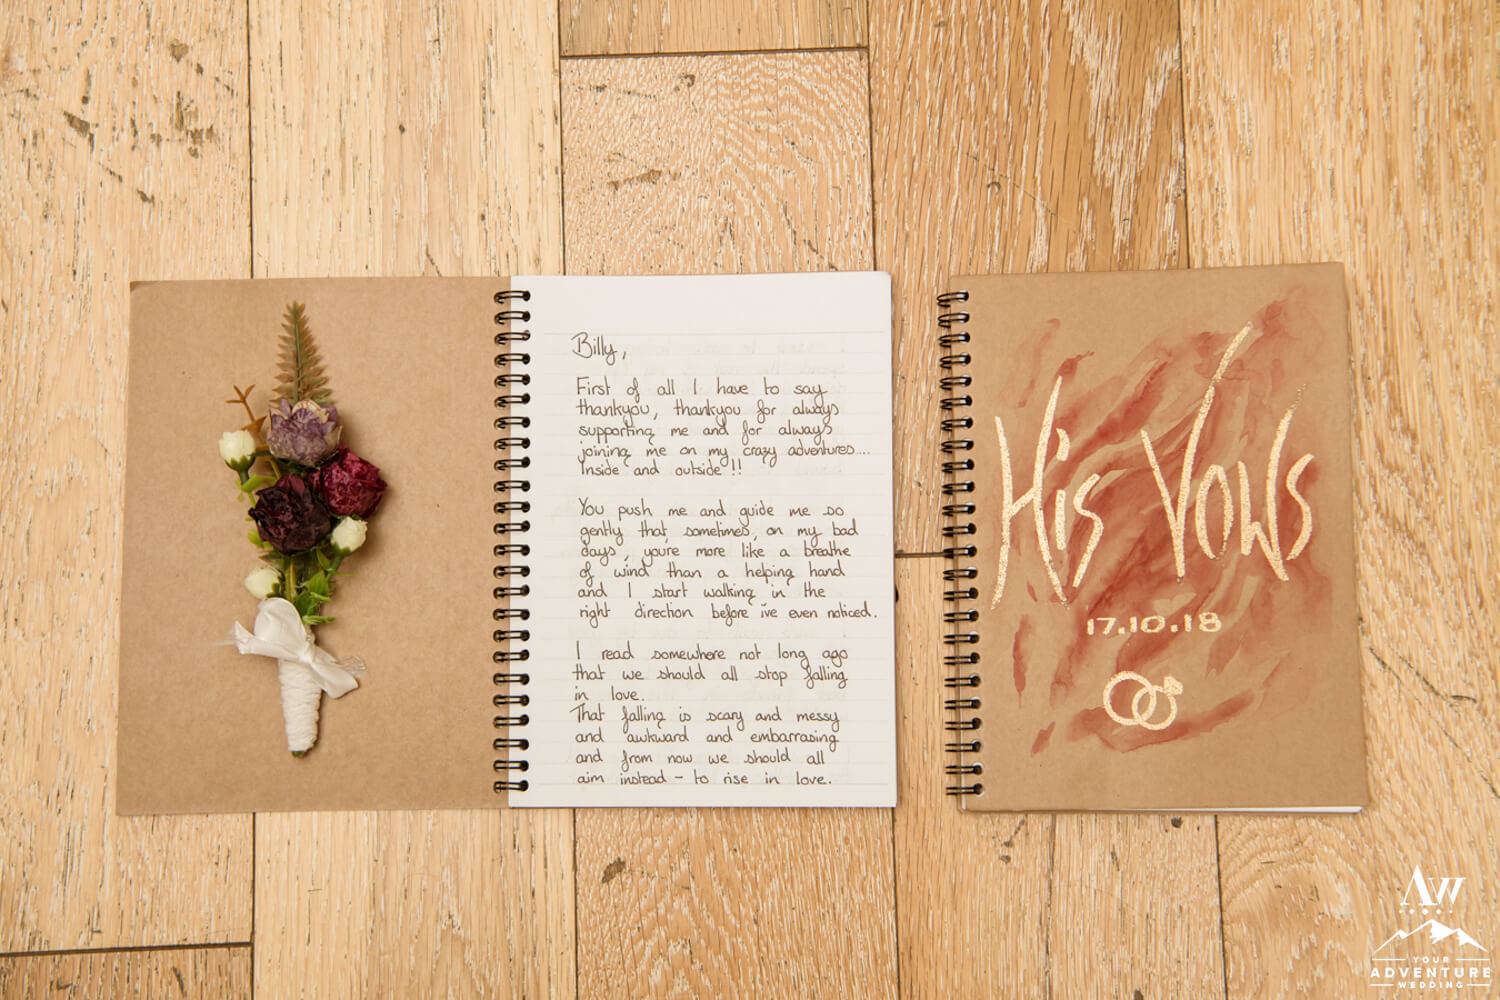 Billy,
First of all I have to say
thankyou, thankyou for always
supporting me and for always
joining me on my crazy adventures....
Inside and outside!!
You push me and guide me so
gently that sometimes, on my bad
days, you're more like a breathe
of wind than a helping hand
and I start walking in the
right direction before i've even noticed.
I read somewhere not long ago
that we should all stop falling
in love.
That falling is scary and messy
and awkward and embarrasing
and from now we should all
aim instead - to rise in love.
His Vows
17.10.18
AW
YOUR
ADVENTURE
WEDDING